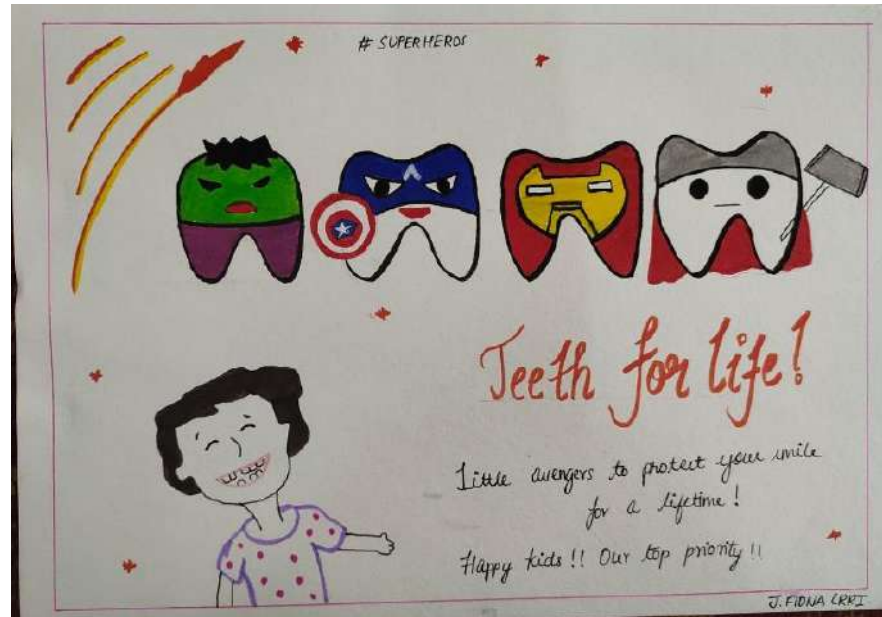 # SUPERHEROS
Teeth for life!
Little avengers to protect your smile
for a lifetime!
Happy kids!! Our top priority!!
J. FIONA CRRI